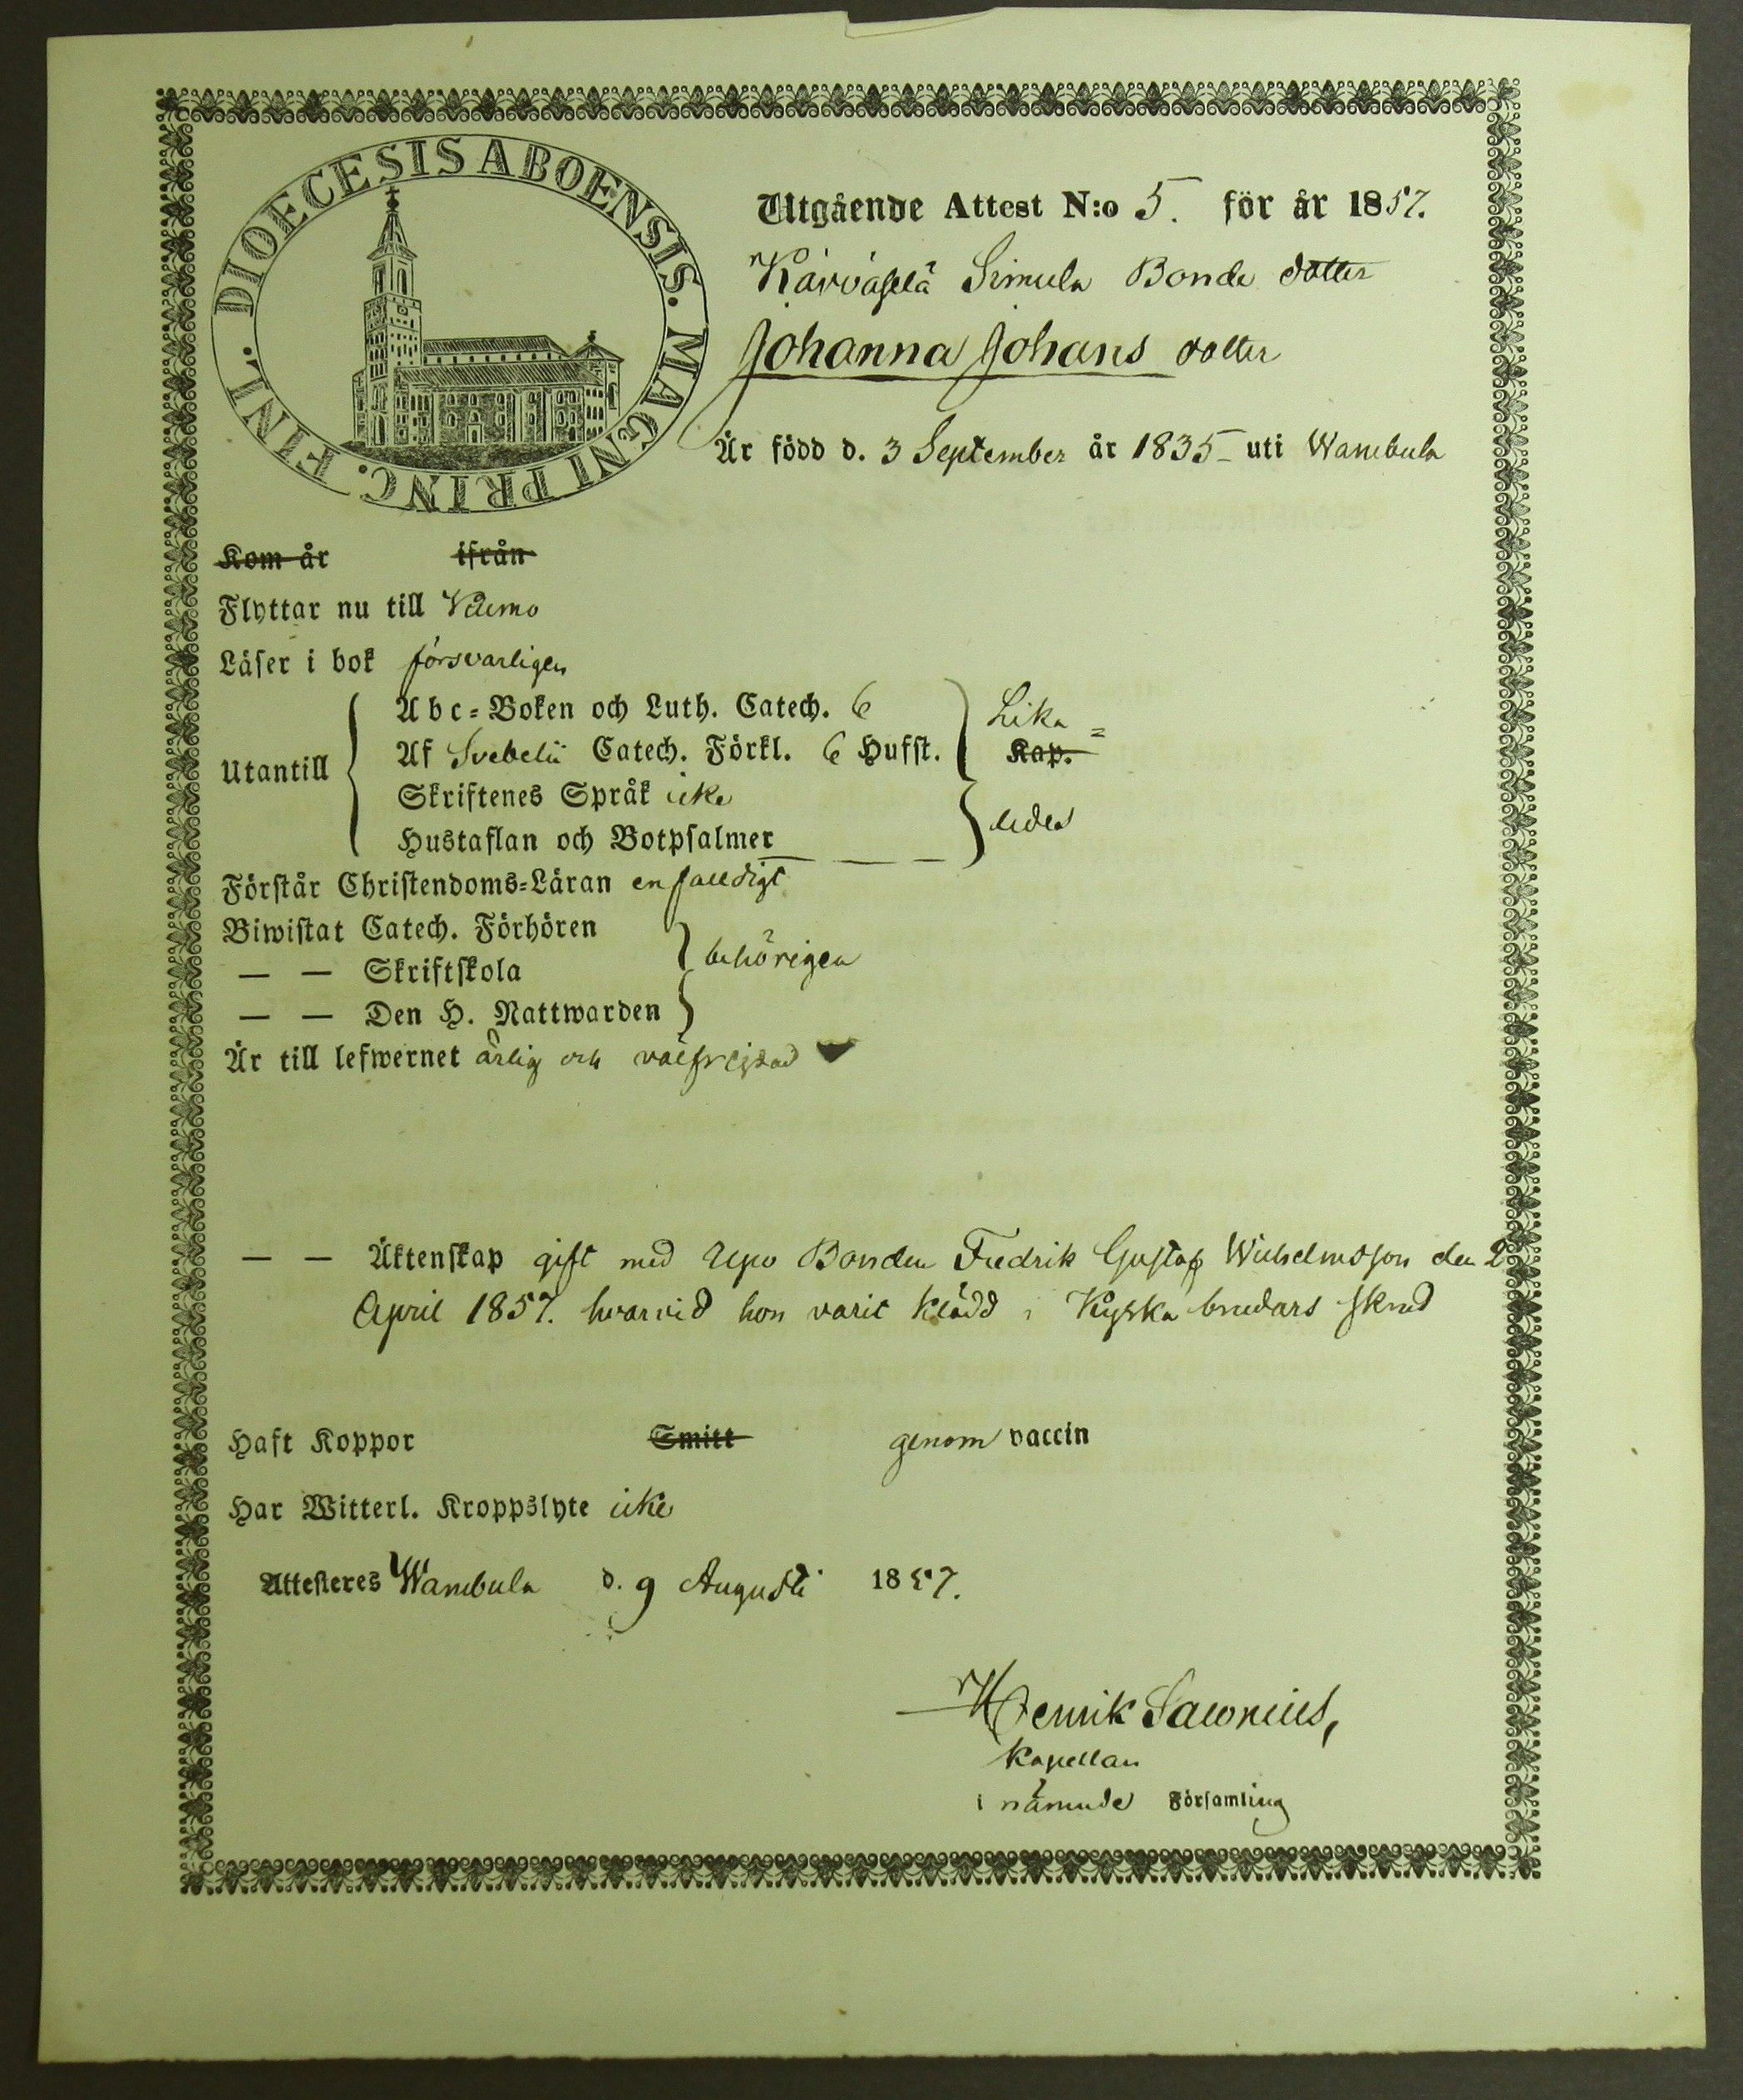 DIOECESIS ABOENSIS. MAGNI PRINC. FINL.
Utgående Attest N:o 5. för år 1857.
Kärväselä Simula Bonde dotter
Johanna Johans dotter
Är född d. 3 September år 1835 uti Wambula
Kom år ifrån
Flyttar nu till Vämo
Läser i bok försvarligen
Utantill
Abc-Boken och Luth. Catech. 6
Af Svebelii Catech. Förkl. 6 Hufst.
Skriftenes Språk icke
Hustaflan och Botpsalmer
Lika=
Kap.
ledes
Förstår Christendoms-Läran enfalldigt
Biwistat Catech. Förhören
— — Skriftskola
— — Den H. Nattwarden
behörigen
Är till lefwernet ärlig och välfrejdad
— — Äktenskap gift med Bonden Fredrik Gustaf Wilhelmsson den 2
April 1857. hvarvid hon varit klädd i Kyska brudars skrud
Haft Koppor Smitt genom vaccin
Har Witterl. Kroppslyte icke
Attesteres Wambula d. 9 Augusti 1857.
Henrik Sawonius,
Kapellan
i nämnde Församling